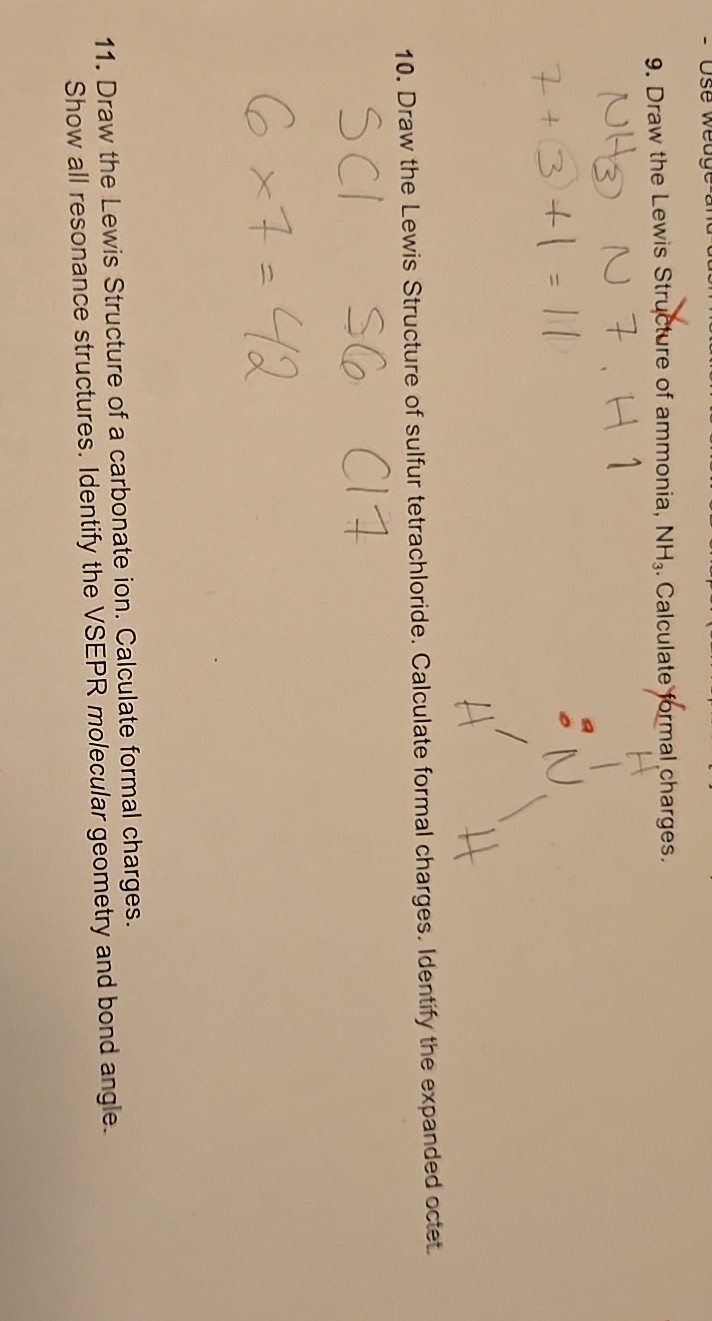 - Use wedge-and-dash
9. Draw the Lewis Structure of ammonia, NH₃. Calculate formal charges.
NH3 N 7 . H 1
7 + 3 + 1 = 11
H
: N
H H
10. Draw the Lewis Structure of sulfur tetrachloride. Calculate formal charges. Identify the expanded octet.
SCl S6 Cl7
6 x 7 = 42
11. Draw the Lewis Structure of a carbonate ion. Calculate formal charges.
Show all resonance structures. Identify the VSEPR molecular geometry and bond angle.